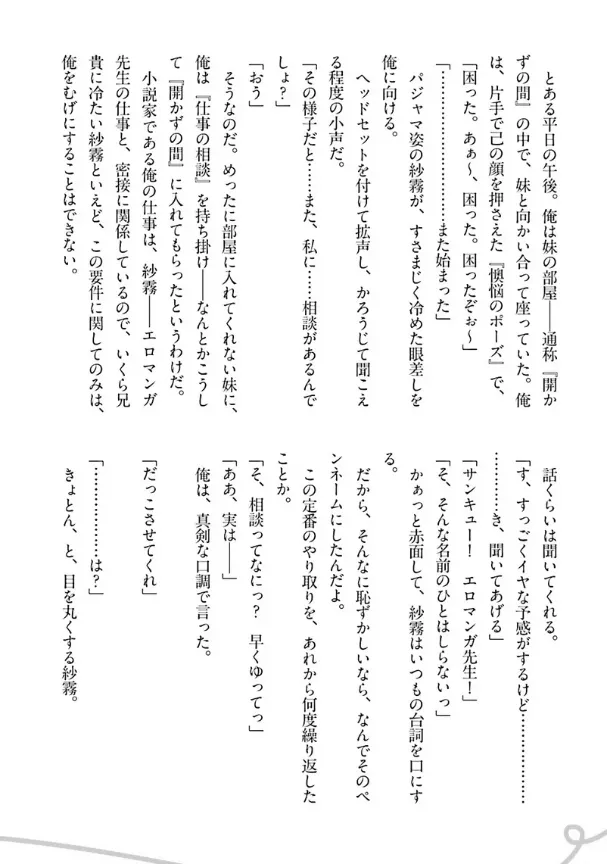 とある平日の午後。俺は妹の部屋――通称『開か
ずの間』の中で、妹と向かい合って座っていた。俺
は、片手で己の顔を押さえた『懊悩のポーズ』で、
「困った。あぁ～、困った。困ったぞぉ～」
「…………………また始まった」
　パジャマ姿の紗霧が、すさまじく冷めた眼差しを
俺に向ける。
　ヘッドセットを付けて拡声し、かろうじて聞こえ
る程度の小声だ。
「その様子だと……また、私に……相談があるんで
しょ？」
「おう」
　そうなのだ。めったに部屋に入れてくれない妹に、
俺は『仕事の相談』を持ち掛け――なんとかこうし
て『開かずの間』に入れてもらったというわけだ。
　小説家である俺の仕事は、紗霧――エロマンガ
先生の仕事と、密接に関係しているので、いくら兄
貴に冷たい紗霧といえど、この要件に関してのみは、
俺をむげにすることはできない。
　話くらいは聞いてくれる。
「す、すっごくイヤな予感がするけど………………
…………き、聞いてあげる」
「サンキュー！　エロマンガ先生！」
「そ、そんな名前のひとはしらないっ」
　かぁっと赤面して、紗霧はいつもの台詞を口にす
る。
　だから、そんなに恥ずかしいなら、なんでそのペ
ンネームにしたんだよ。
　この定番のやり取りを、あれから何度繰り返した
ことか。
「そ、相談ってなにっ？　早くゆってっ」
「ああ、実は――」
　俺は、真剣な口調で言った。
「だっこさせてくれ」
「………………は？」
　きょとん、と、目を丸くする紗霧。